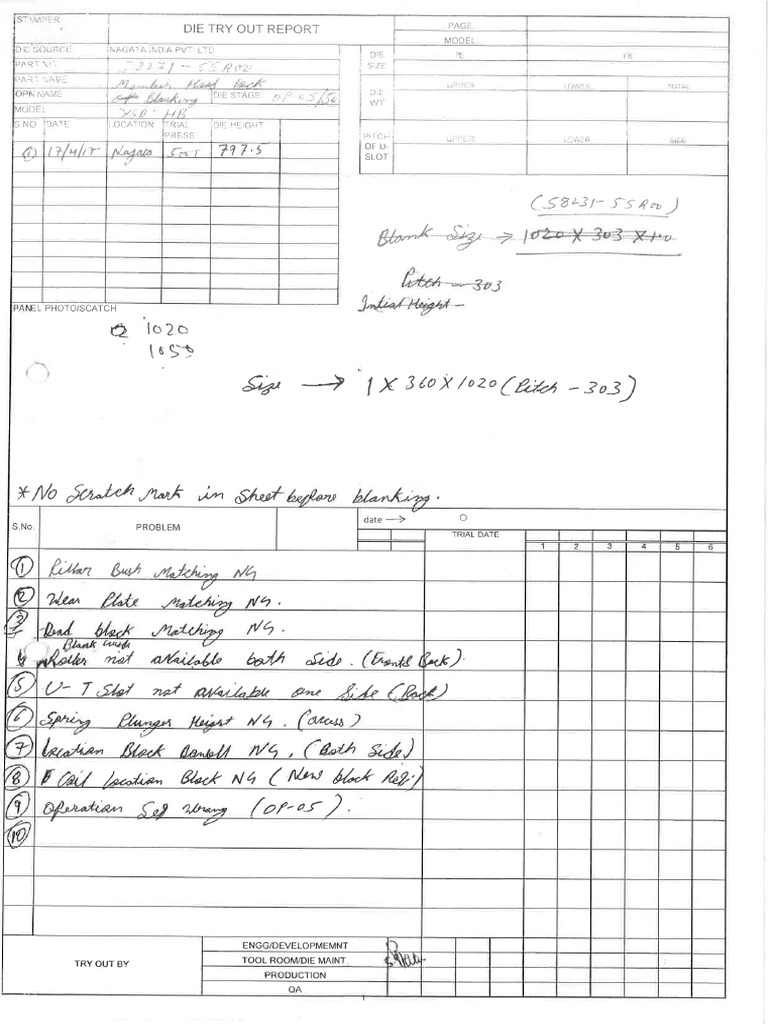 STAMPER
DIE TRY OUT REPORT
PAGE
MODEL
DIE SOURCE NAGATA INDIA PVT. LTD
PART NO. 58231-55R00
PART NAME Member Hood Lock
OPN NAME Blanking DIE STAGE OP-05/50
MODEL YSD-HB
DIE SIZE
UPPER LOWER TOTAL
DIE WT
PITCH OF U-SLOT
UPPER LOWER SIDE
S.NO DATE LOCATION TRIAL PRESS DIE HEIGHT
① 17/4/17 Nagata 500T 797.5
(58231-55R00)
Blank Size → 1020 X 303 X 1.0
Pitch - 303
Initial Height -
PANEL PHOTO/SCATCH
1020
1050
Size → 1 X 360 X 1020 (Pitch - 303)
* No Scratch Mark in Sheet before blanking.
S.No. PROBLEM
date →
TRIAL DATE
1 2 3 4 5 6
① Pillar Bush Matching NG
② Wear Plate Matching NG.
③ Dead block Matching NG.
Blank Guide
4 Roller not available both Side. (Front & Back).
⑤ U-T Slot not available one Side (Back)
⑥ Spring Plunger Height NG.
⑦ Location Block NG. (Both Side)
⑧ Coil Location Block NG (New block
⑨ Operation Seq Wrong (OP-05).
⑩
TRY OUT BY
ENGG/DEVELOPMEMNT
TOOL ROOM/DIE MAINT
PRODUCTION
QA